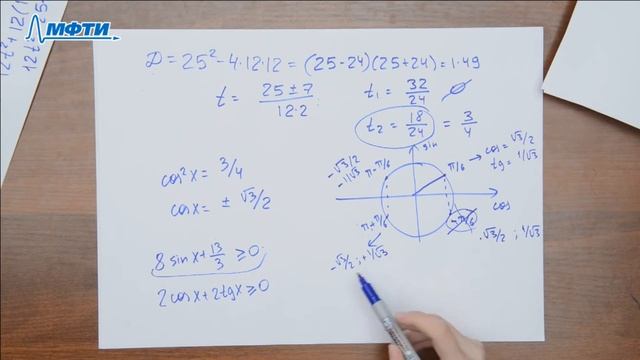 МФТИ
12t² + 12(1
12t² - 25
D = 25² - 4·12·12 = (25-24)(25+24) = 1·49
t = (25 ± 7)/(12·2)
t₁ = 32/24 ∅
t₂ = 18/24 = 3/4
cos²x = 3/4
cosx = ± √3/2
8 sinx + 13/3 ≥ 0
2cosx + 2tgx ≥ 0
sin
cos
-√3/2
-1/√3
π - π/6
π/6
cos = √3/2
tg = 1/√3
π + π/6
-π/6
√3/2 ; 1/√3
-√3/2 ; +1/√3